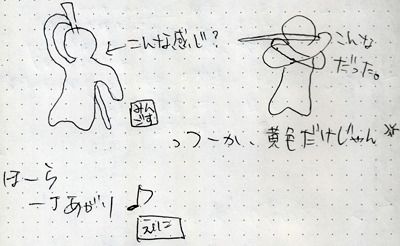 こんな感じ?
こんな
だった。
みん
ごす
っつーか、黄色だけじゃん
ほーら
一丁あがり♪